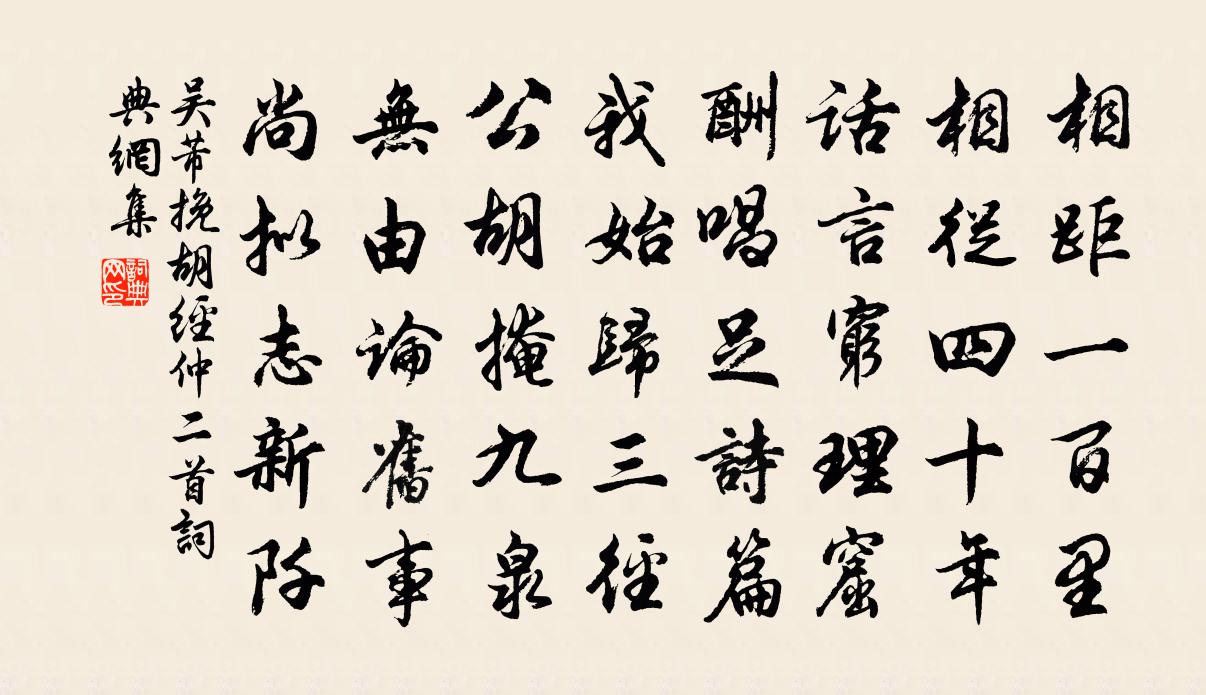 相距一百里
相從四十年
話言窮理窟
酬唱足詩篇
我始歸三徑
公胡掩九泉
無由論舊事
尚擬志新阡
吳芾挽胡經仲二首詞
典網集
詞典
网印